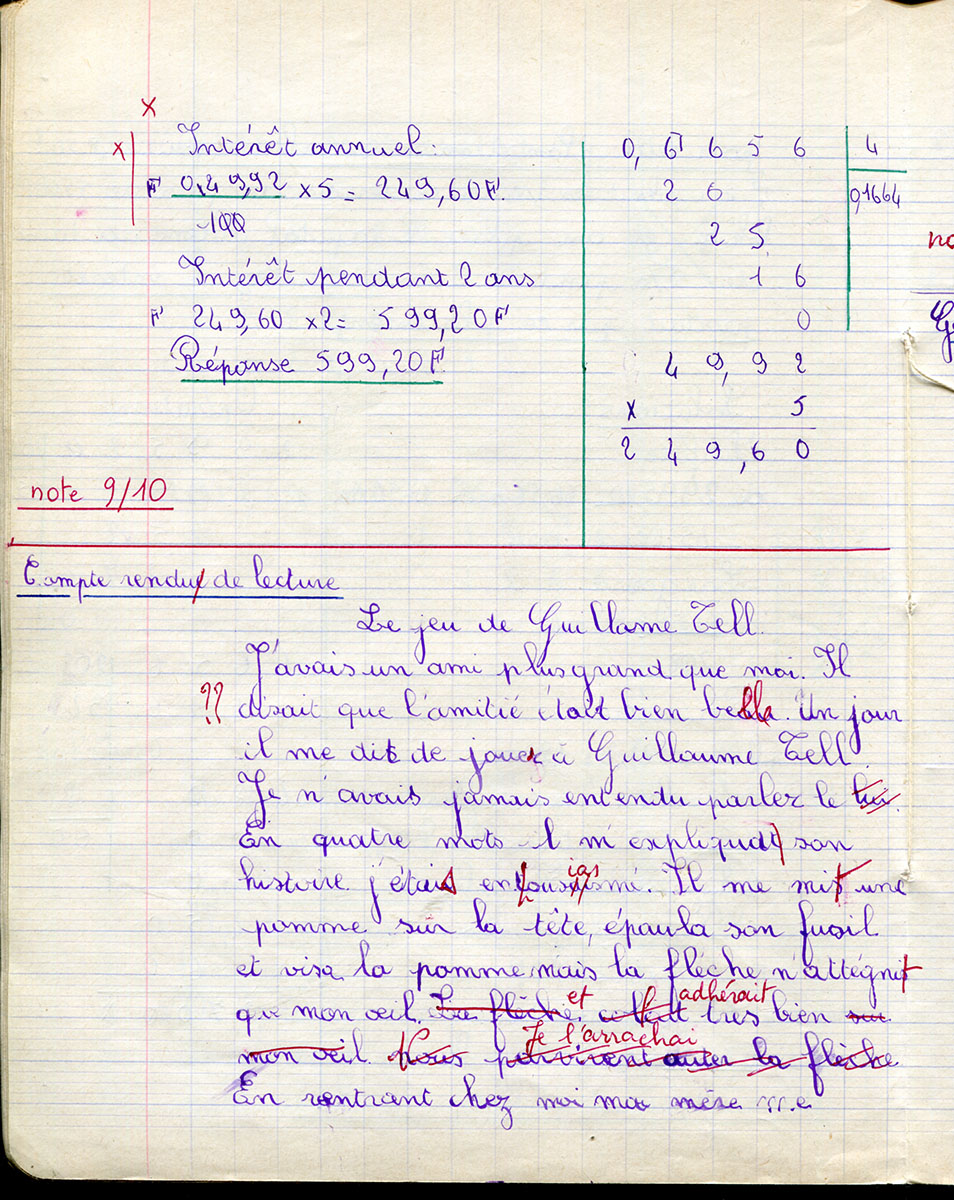 x
x Intérêt annuel.
F 0,49,92 x 5 = 249,60F.
100
Intérêt pendant 2 ans
F 249,60 x2= 599,20F
Réponse 599,20F
0, 6 6 5 6 4
2 6 0,1664
2 5
1 6
0
4 9, 9 2
x 5
2 4 9 , 6 0
note 9/10
no
G
Compte rendu de lecture
Le jeu de Guillame Tell.
J'avais un ami plus grand que moi. Il
?? disait que l'amitié était bien belle. Un jour
il me dit de jouer à Guillaume Tell.
Je n'avais jamais entendu parler le lui.
En quatre mots il m'expliqua son
histoire. j'étais enthousiasmé. Il me mit une
pomme sur la tête, épaula son fusil
et visa la pomme mais la flèche n'attégnit
que mon œil. La flèche et adhérait très bien sur
mon œil. Nous Je l'arrachai la flèche
En rentrant chez moi ma mère